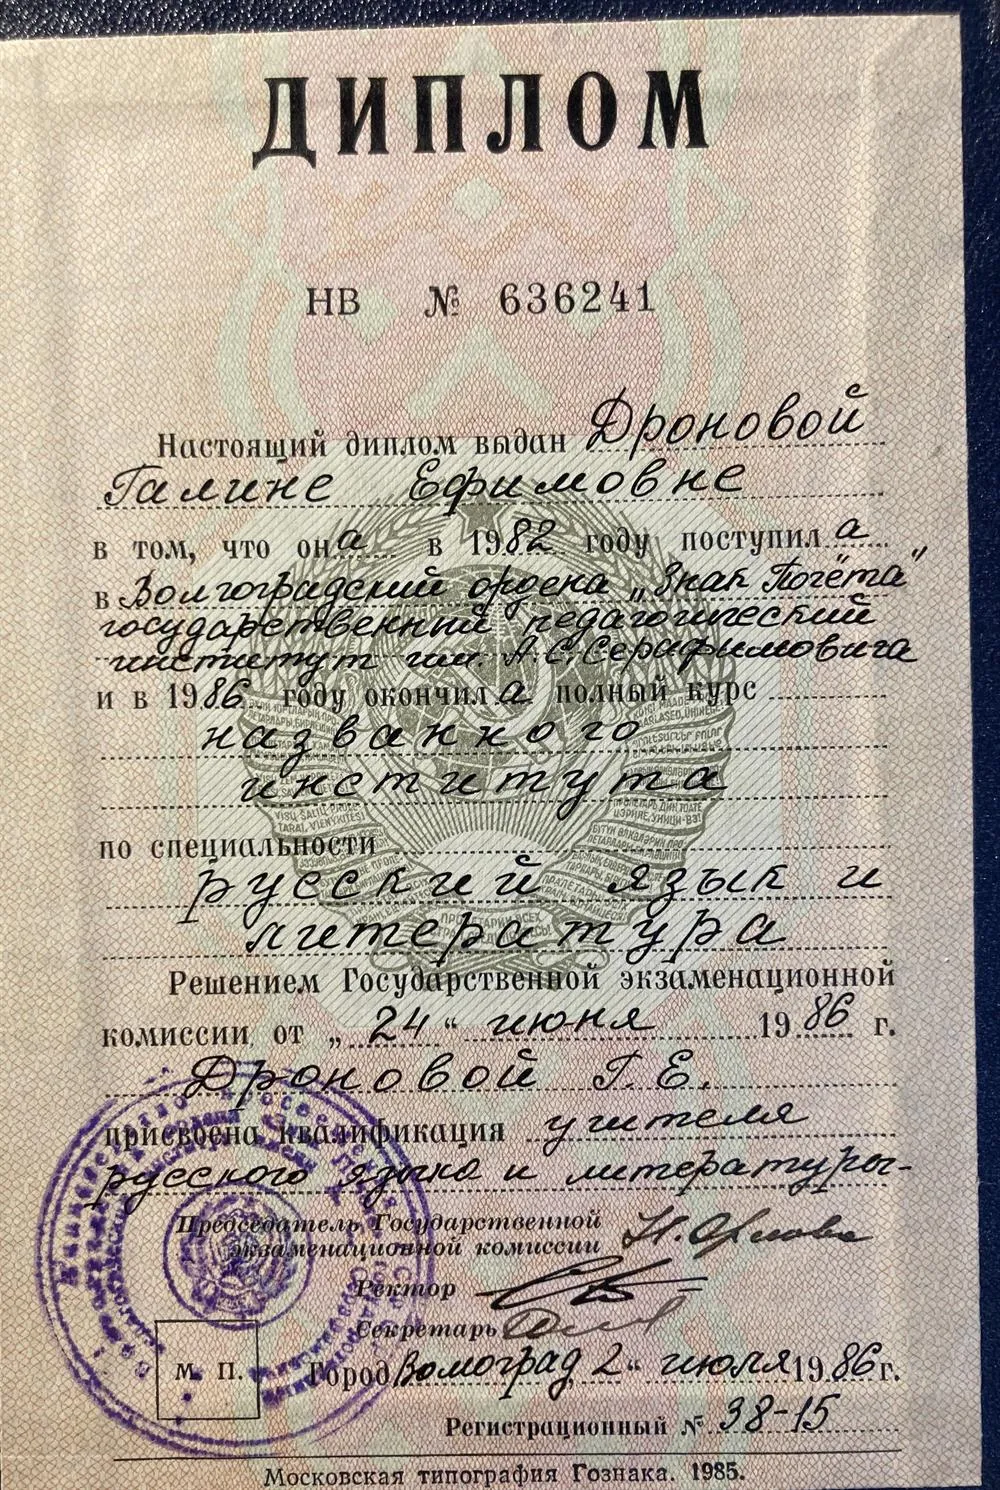 ДИПЛОМ
НВ № 636241
Настоящий диплом выдан Дроновой
Галине Ефимовне
в том, что она в 1982 году поступила
в Волгоградский ордена „Знак Почёта"
государственный педагогический
институт им. А.С.Серафимовича
и в 1986 году окончила полный курс
названного
института
по специальности
русский язык и
литература
Решением Государственной экзаменационной
комиссии от „24" июня 1986 г.
Дроновой Г.Е.
присвоена квалификация учителя
русского языка и литературы-
Председатель Государственной
экзаменационной комиссии
Ректор
Секретарь
М. П.
Город Волгоград 2" июля 1986 г.
Регистрационный № 38-15
Московская типография Гознака. 1985.